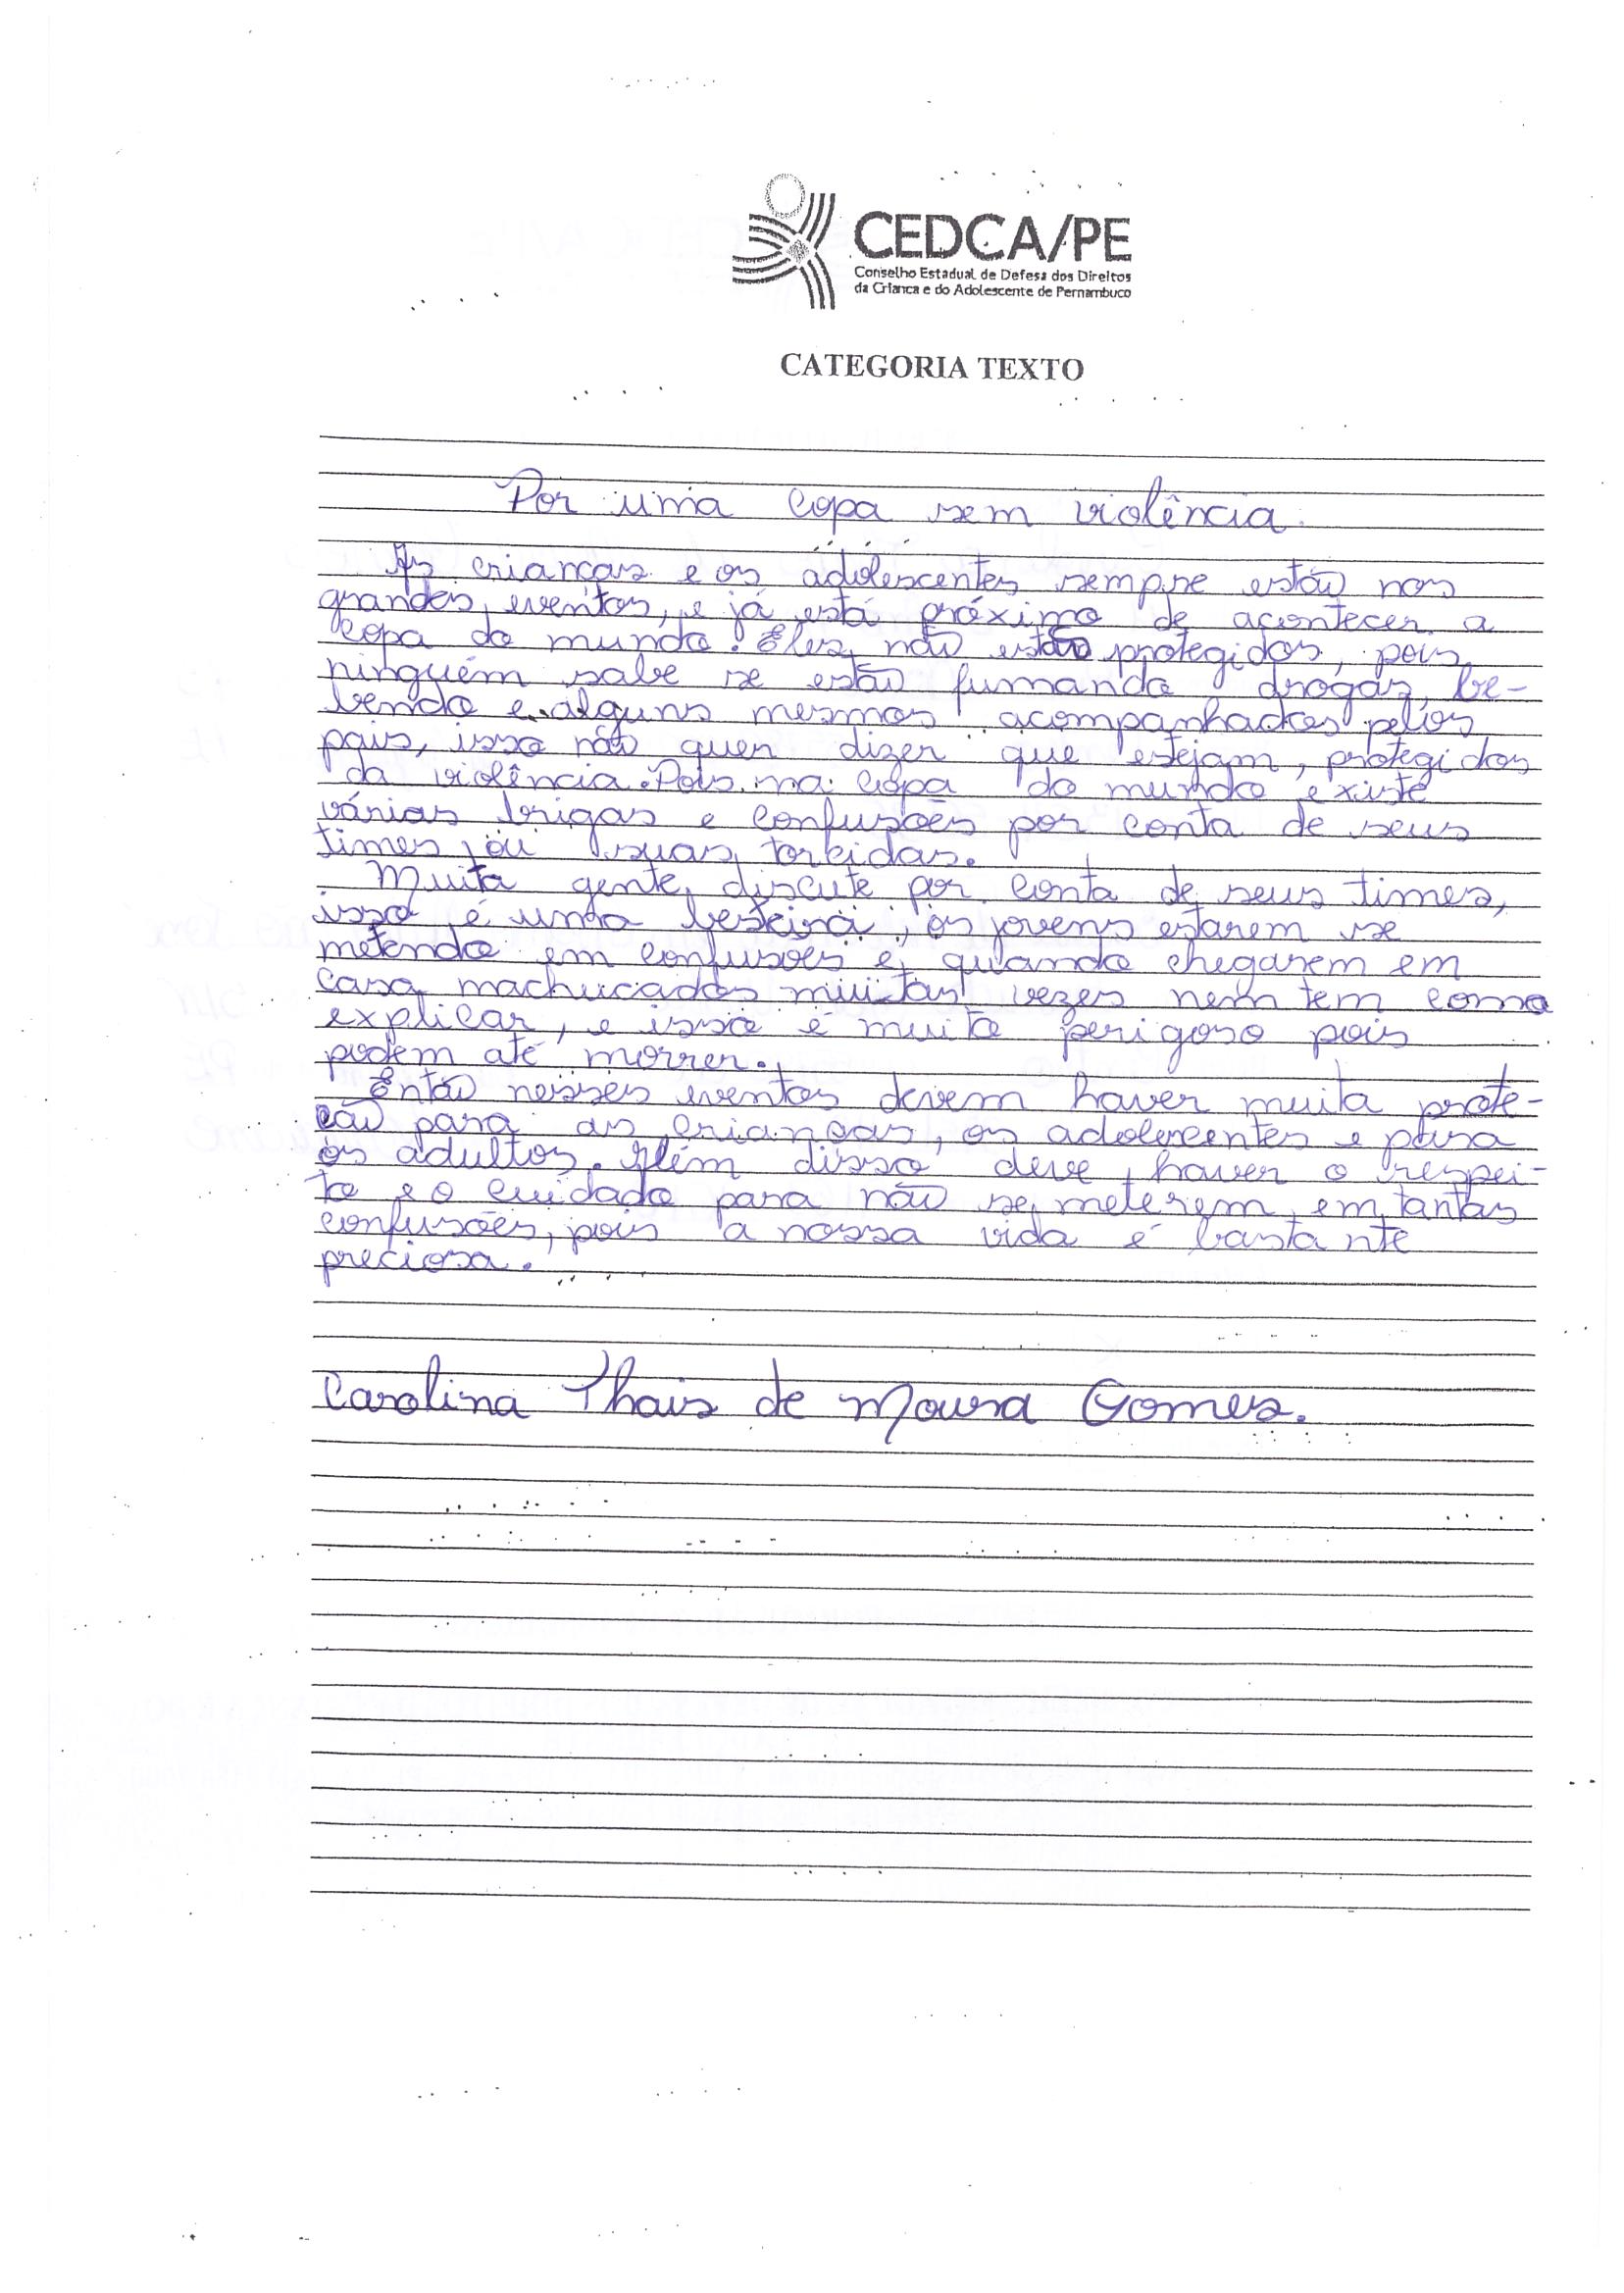 CEDCA/PE
Conselho Estadual de Defesa dos Direitos
da Criança e do Adolescente de Pernambuco
CATEGORIA TEXTO
Por uma copa sem violência.
As crianças e os adolescentes sempre estão nos
grandes eventos, e já está próximo de acontecer a
copa do mundo. Eles não estão protegidos, pois
ninguém sabe se estão fumando drogas, be-
bendo e alguns mesmos acompanhados pelos
pais, isso não quer dizer que estejam, protegidos
da violência. Pois na copa do mundo existe
várias brigas e confusões por conta de seus
times ou suas torcidas.
Muita gente discute por conta de seus times,
isso é uma besteira, os jovens estarem se
metendo em confusões e, quando chegarem em
casa machucados muitas vezes nem tem como
explicar, e isso é muito perigoso pois
podem até morrer.
Então nesses eventos devem haver muita prote-
ção para as crianças, os adolecentes e para
os adultos. Além disso deve haver o respei-
to e o cuidado para não se meterem em tantas
confusões, pois a nossa vida é bastante
preciosa.
Carolina Thais de Moura Gomes.